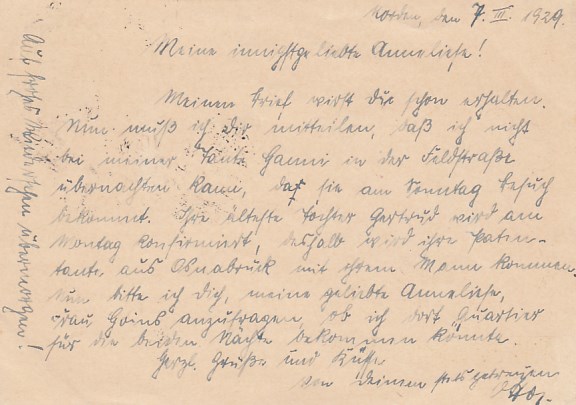 Norden, den 7. III. 1929.
Meine innigstgeliebte Anneliese!
Meinen Brief wirst Du schon erhalten.
Nun muß ich Dir mitteilen, daß ich nicht
bei meiner Tante Hanni in der Feldstraße
übernachten kann, da sie am Sonntag Besuch
bekommt. Ihre älteste Tochter Gertrud wird am
Montag konfirmiert, deshalb wird ihre Paten-
tante aus Osnabrück mit ihrem Mann kommen.
Nun bitte ich Dich, meine geliebte Anneliese,
Frau Goins anzufragen, ob ich dort Quartier
für die beiden Nächte bekommen könnte.
Herzl. Grüße und Küsse
von Deinem stets getreuen
Otto.
Auf frohes Wiedersehen übermorgen!